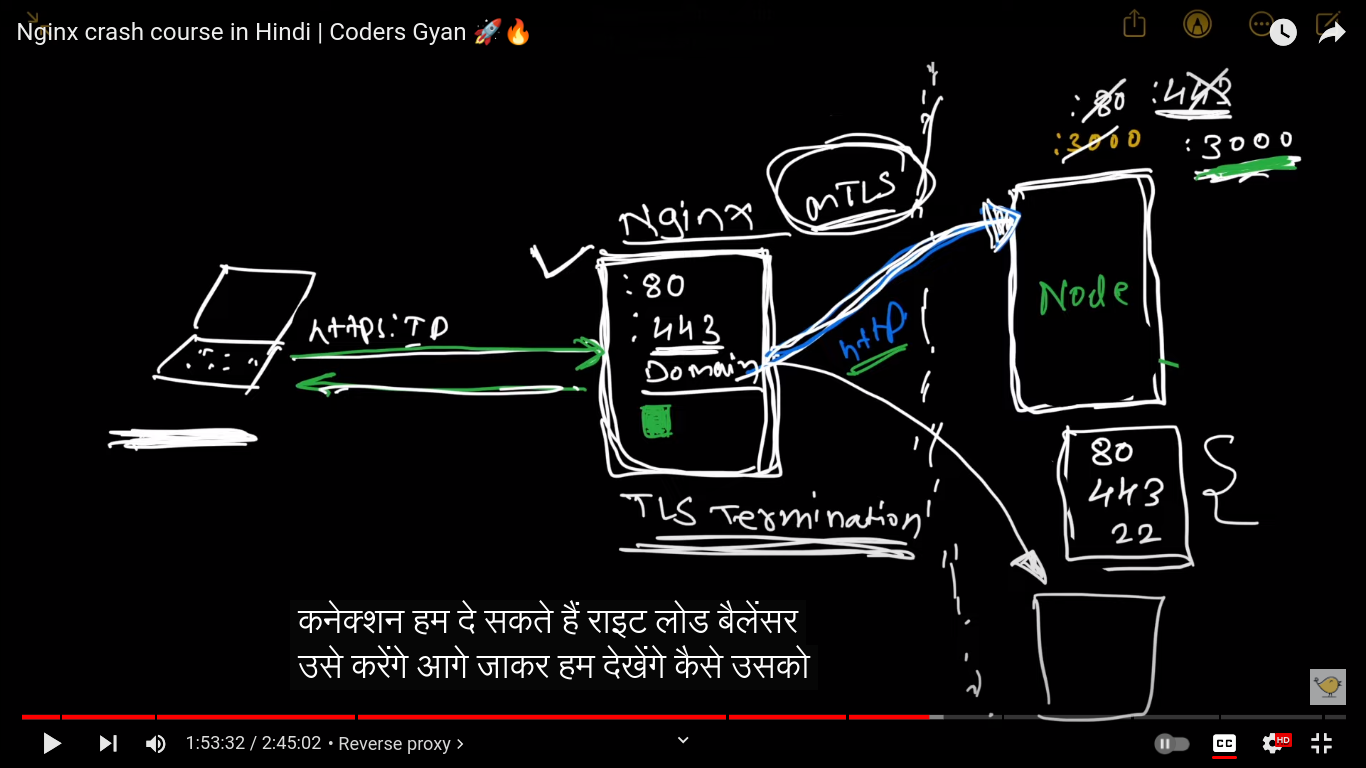 Nginx crash course in Hindi | Coders Gyan 🚀🔥
:80 :443
:3000 :3000
mTLS
Nginx
:80
:443
Domain
https: IP
http
Node
80
443
22
TLS Termination
कनेक्शन हम दे सकते हैं राइट लोड बैलेंसर
उसे करेंगे आगे जाकर हम देखेंगे कैसे उसको
1:53:32 / 2:45:02 • Reverse proxy >
CC
HD